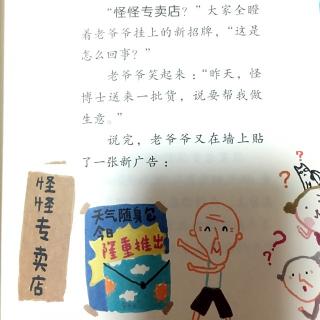 “怪怪专卖店？”大家全瞪
着老爷爷挂上的新招牌，“这是
怎么回事？”
老爷爷笑起来：“昨天，怪
博士送来一批货，说要帮我做
生意。”
说完，老爷爷又在墙上贴
了一张新广告：
怪怪专卖店
天气随身包
今日
隆重推出
？
？
？
？